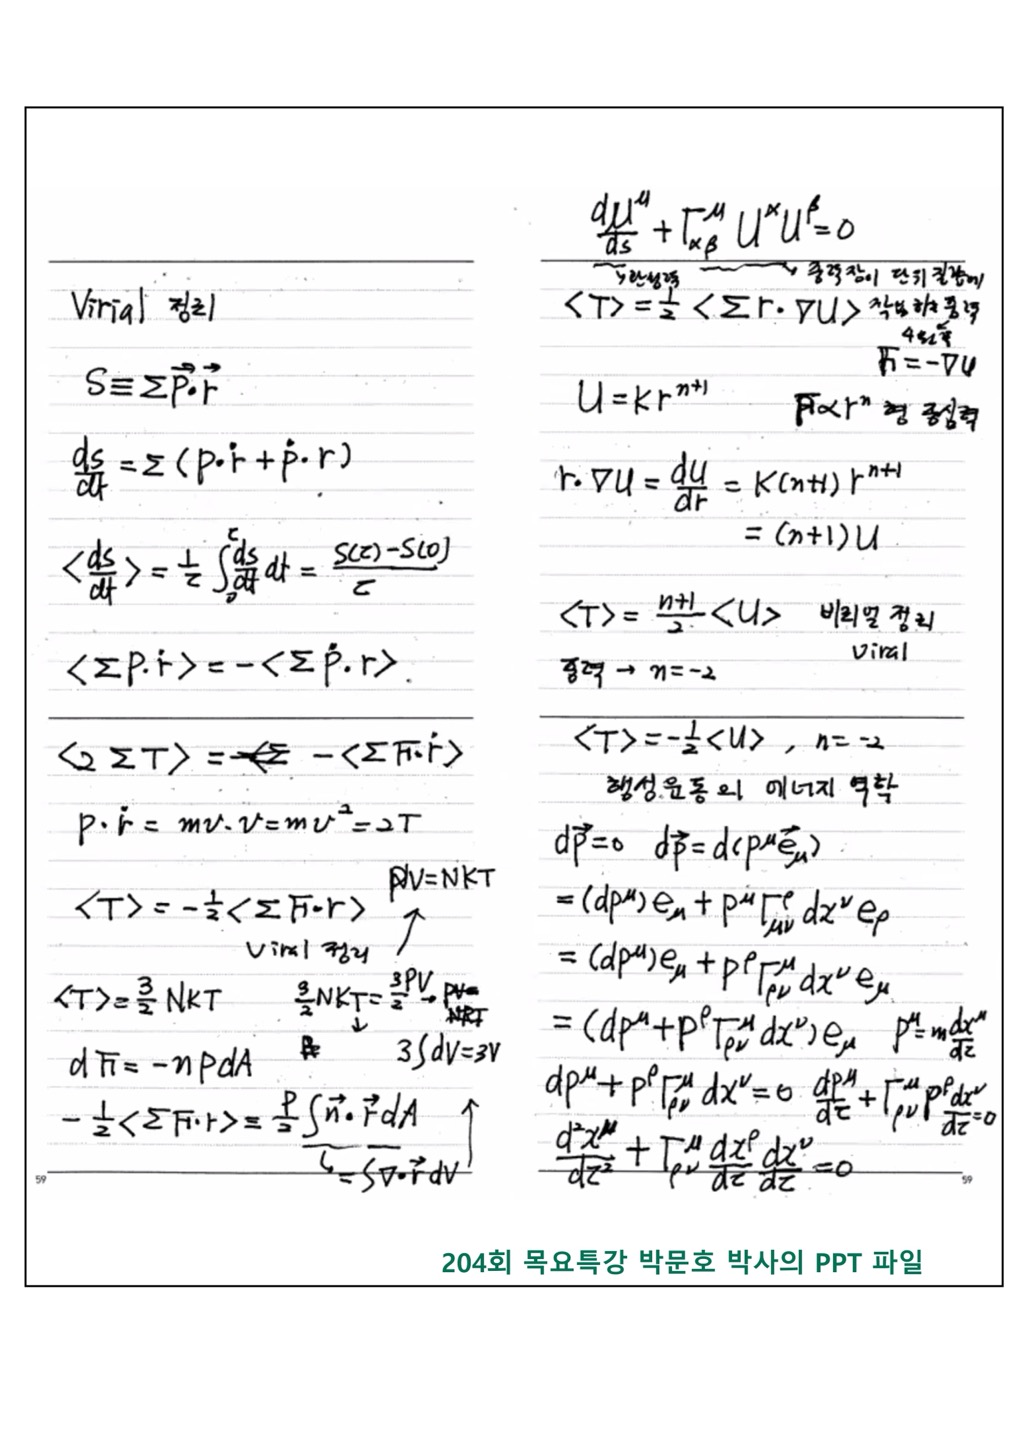 Virial 정리
S ≡ Σ p⃗·r⃗
ds/dt = Σ (p·ṙ + ṗ·r)
<ds/dt> = 1/τ ∫₀^τ ds/dt dt = (S(τ) - S(0))/τ
<Σ p·ṙ> = -<Σ ṗ·r>.
<2 Σ T> = - <Σ F·ṙ>
p·ṙ = mv·v = mv² = 2T
PV = NKT
<T> = -1/2 <Σ F·r>
Viral 정리
<T> = 3/2 NKT 3/2 NKT = 3/2 PV → PV = NKT
dF = -n P dA 3∫dV = 3V
-1/2 <Σ F·r> = P/2 ∫ n⃗·r⃗ dA
= ∫ ∇·r⃗ dV
59
dU^μ/ds + Γ^μ_αβ U^α U^β = 0
→ 관성력 → 중력장이 단위 질량에
<T> = 1/2 <Σ r·∇U> 작용하는 중력
F = -∇U
U = Kr^(n+1) F ∝ r^n 형 중심력
r·∇U = dU/dr = K(n+1) r^(n+1)
= (n+1) U
<T> = (n+1)/2 <U> 비리얼 정리
Viral
중력 → n = -2
<T> = -1/2 <U> , n = -2
행성운동의 에너지 역학
dp⃗ = 0 dp⃗ = d(p^μ e⃗_μ)
= (dp^μ) e_μ + p^μ Γ^ρ_μν dx^ν e_ρ
= (dp^μ) e_μ + p^ρ Γ^μ_ρν dx^ν e_μ
= (dp^μ + p^ρ Γ^μ_ρν dx^ν) e_μ p^μ = m dx^μ/dτ
dp^μ + p^ρ Γ^μ_ρν dx^ν = 0 dp^μ/dτ + Γ^μ_ρν p^ρ dx^ν/dτ = 0
d²x^μ/dτ² + Γ^μ_ρν dx^ρ/dτ dx^ν/dτ = 0
59
204회 목요특강 박문호 박사의 PPT 파일